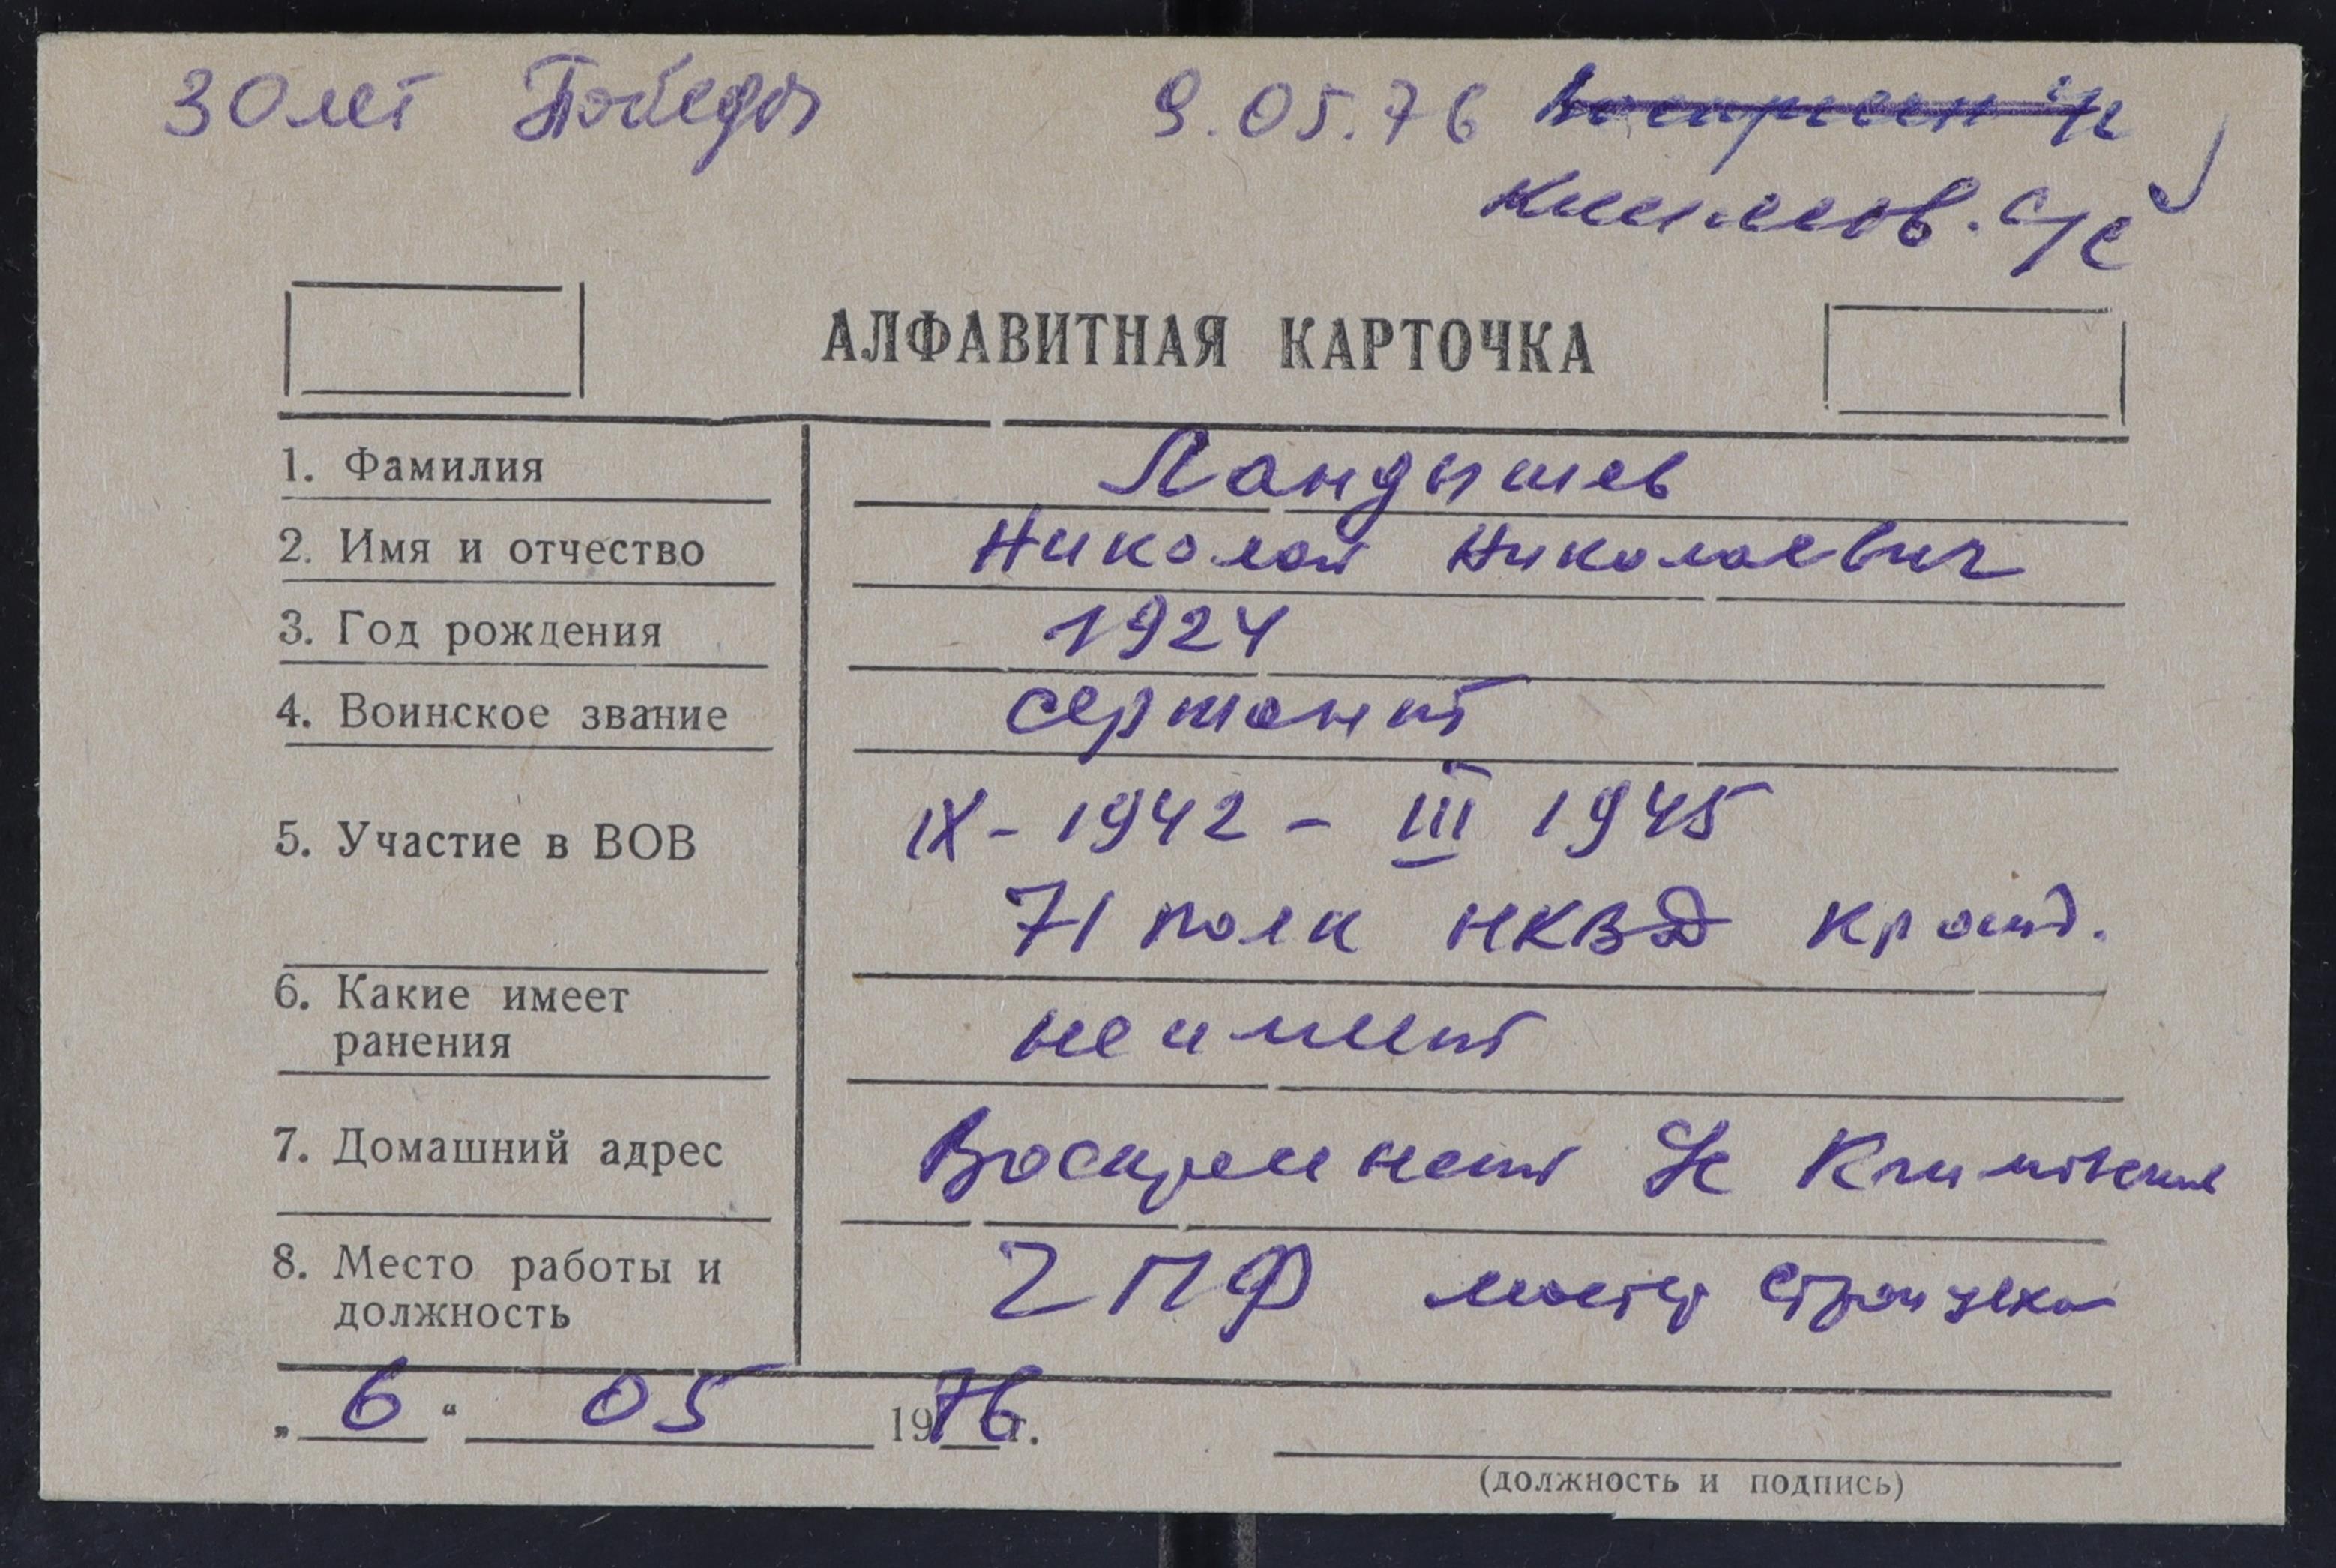 30 лет Победы 9.05.76
с/с
АЛФАВИТНАЯ КАРТОЧКА
1. Фамилия Ландышев
2. Имя и отчество Николай Николаевич
3. Год рождения 1924
4. Воинское звание сержант
5. Участие в ВОВ IX - 1942 - III 1945
71 полк НКВД
6. Какие имеет
ранения не имеет
7. Домашний адрес
8. Место работы и
должность 2 ПФ мастер стройцеха
„ 6 “ 05 1976 г.
(должность и подпись)